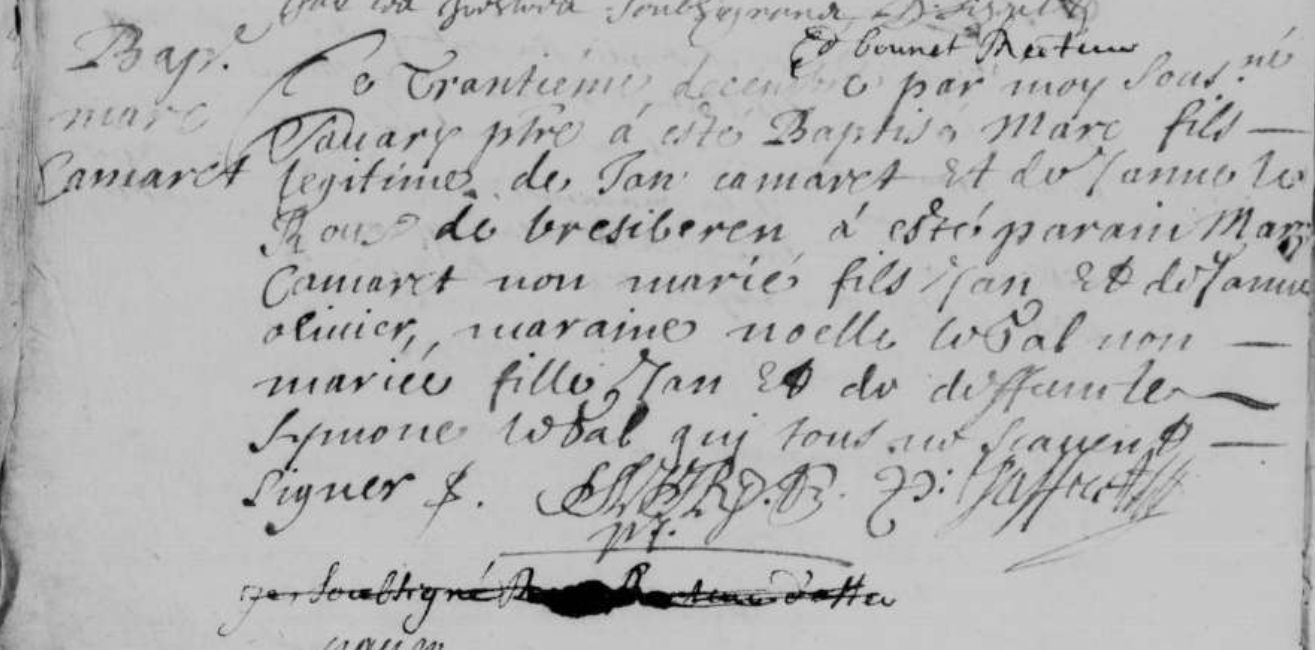 par
bonnet Recteur
Bap.
marc
Camaret
Ce Trantiéme decembre par moy Sous.né
Sauary ptre á esté Baptisé Marc fils —
legitime de Jan camaret Et de Janne le
Roux de bresiberen á esté parain Marc
Camaret non marié fils Jan Et de Janne
oliuier, maraine noelle le Bal non —
mariée fille Jan Et de deffunte
Symone le Bal qui tous ne scauent —
signer
Jaffret
ptre
Soubsigné Recteur